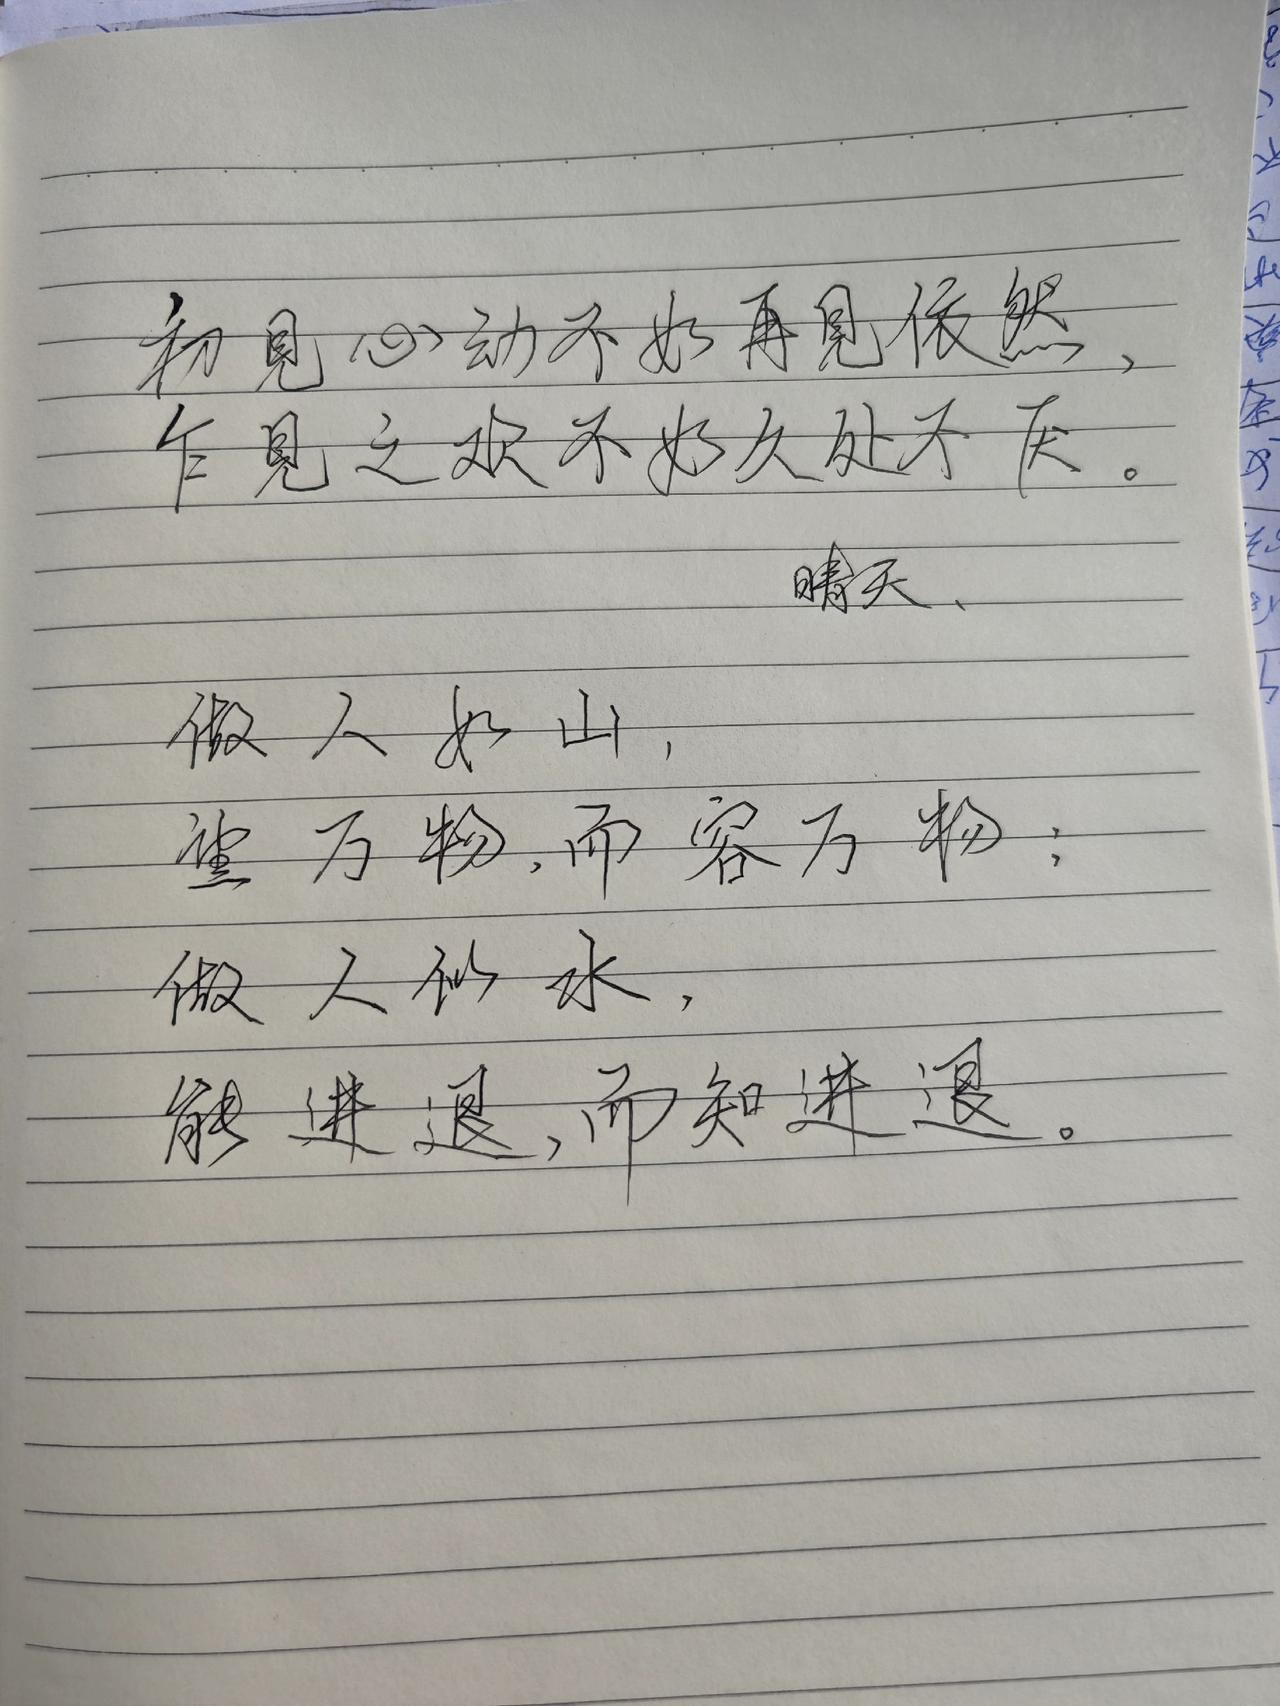 初見心动不如再見依然，
乍見之欢不如久处不厌。
晴天、
做人如山，
望万物，而容万物；
做人似水，
能进退，而知进退。